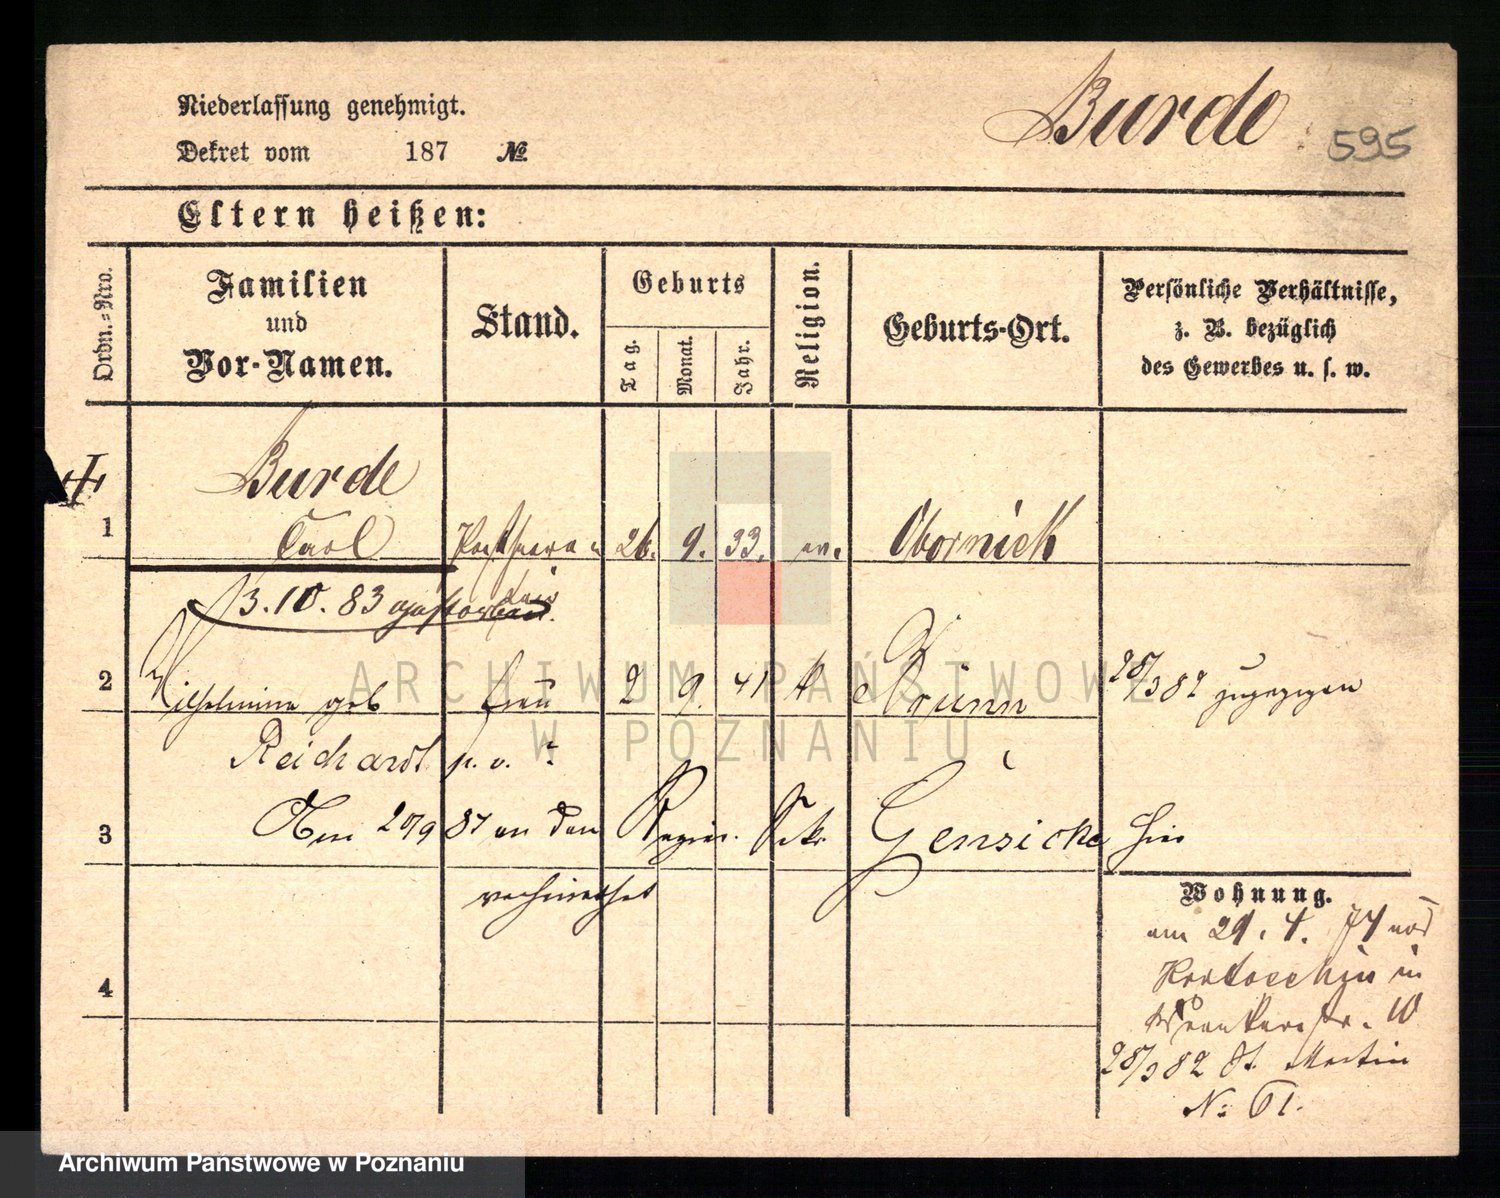 Niederlassung genehmigt.
Burde
595
Dekret vom 187 №
Eltern heißen:
Ordn.-Nro.
Familien
und
Vor-Namen.
Stand.
Geburts
Tag.
Monat.
Jahr.
Religion.
Geburts-Ort.
Persönliche Verhältnisse,
z. B. bezüglich
des Gewerbes u. s. w.
Burde
1 Carl 26. 9. 33. ev. Obornick
13.10.83 gestorben
2 Wilhelmine geb Frau 2 9. 41 k Brünn 28/3 82 zugezogen
Reichardt
3 Am 20/9 87 an den Regier. Sekr. Gensicke hier
verheirathet
Wohnung.
am 29. 4. 74 von
Krotoschin in
4
10
28/3 82 St. Martin
No 61.
ARCHIWUM PAŃSTWOWE
W POZNANIU
Archiwum Państwowe w Poznaniu